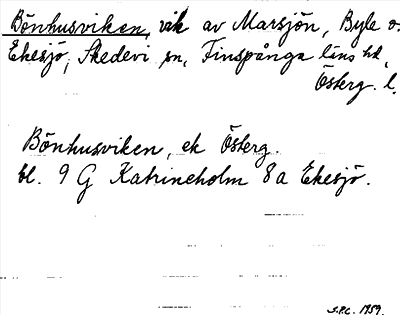 Bönhusviken, vik av Marsjön, Byle o.
Ekesjö, Skedevi sn, Finspånga läns hd,
Österg. l.
Bönhusviken, ek Österg.
bl. 9 G Katrineholm 8 a Ekesjö.
S.P.C. 1959.